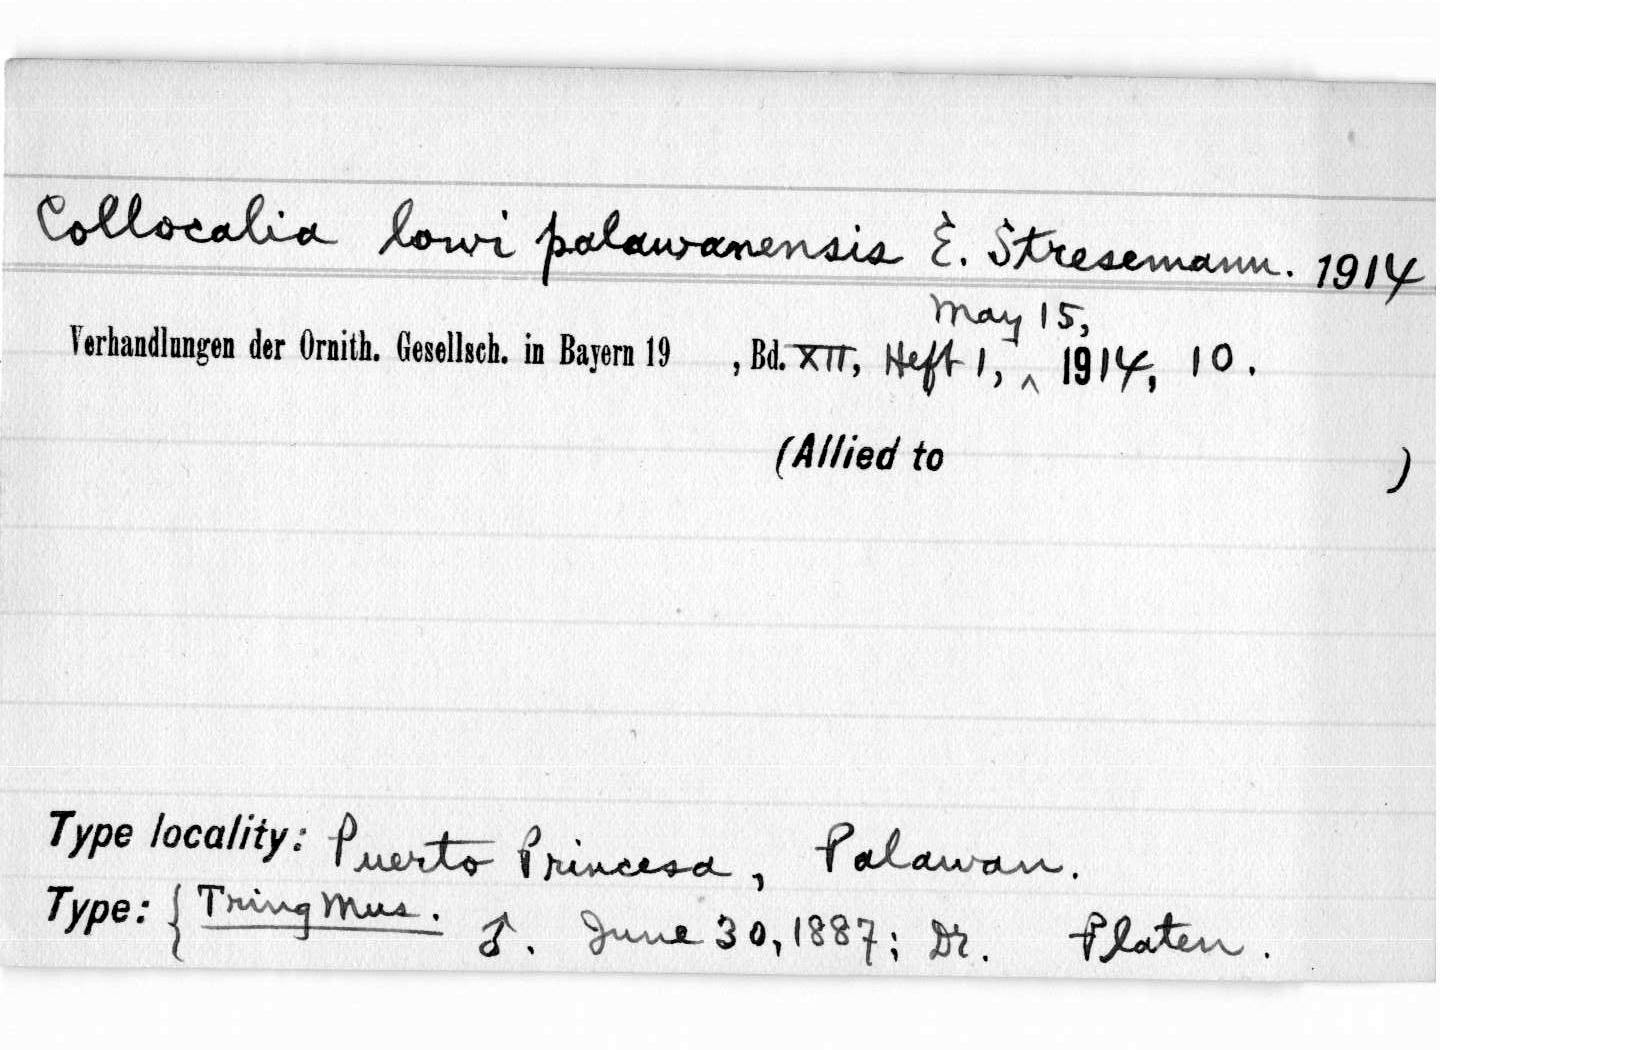 Collocalia lowi palawanensis E. Stresemann. 1914
May 15,
Verhandlungen der Ornith. Gesellsch. in Bayern 19 , Bd. XII, Heft 1, ^ 1914, 10.
(Allied to )
Type locality: Puerto Princesa, Palawan.
Type: { Tring Mus. ♂. June 30, 1887; Dr. Platen.